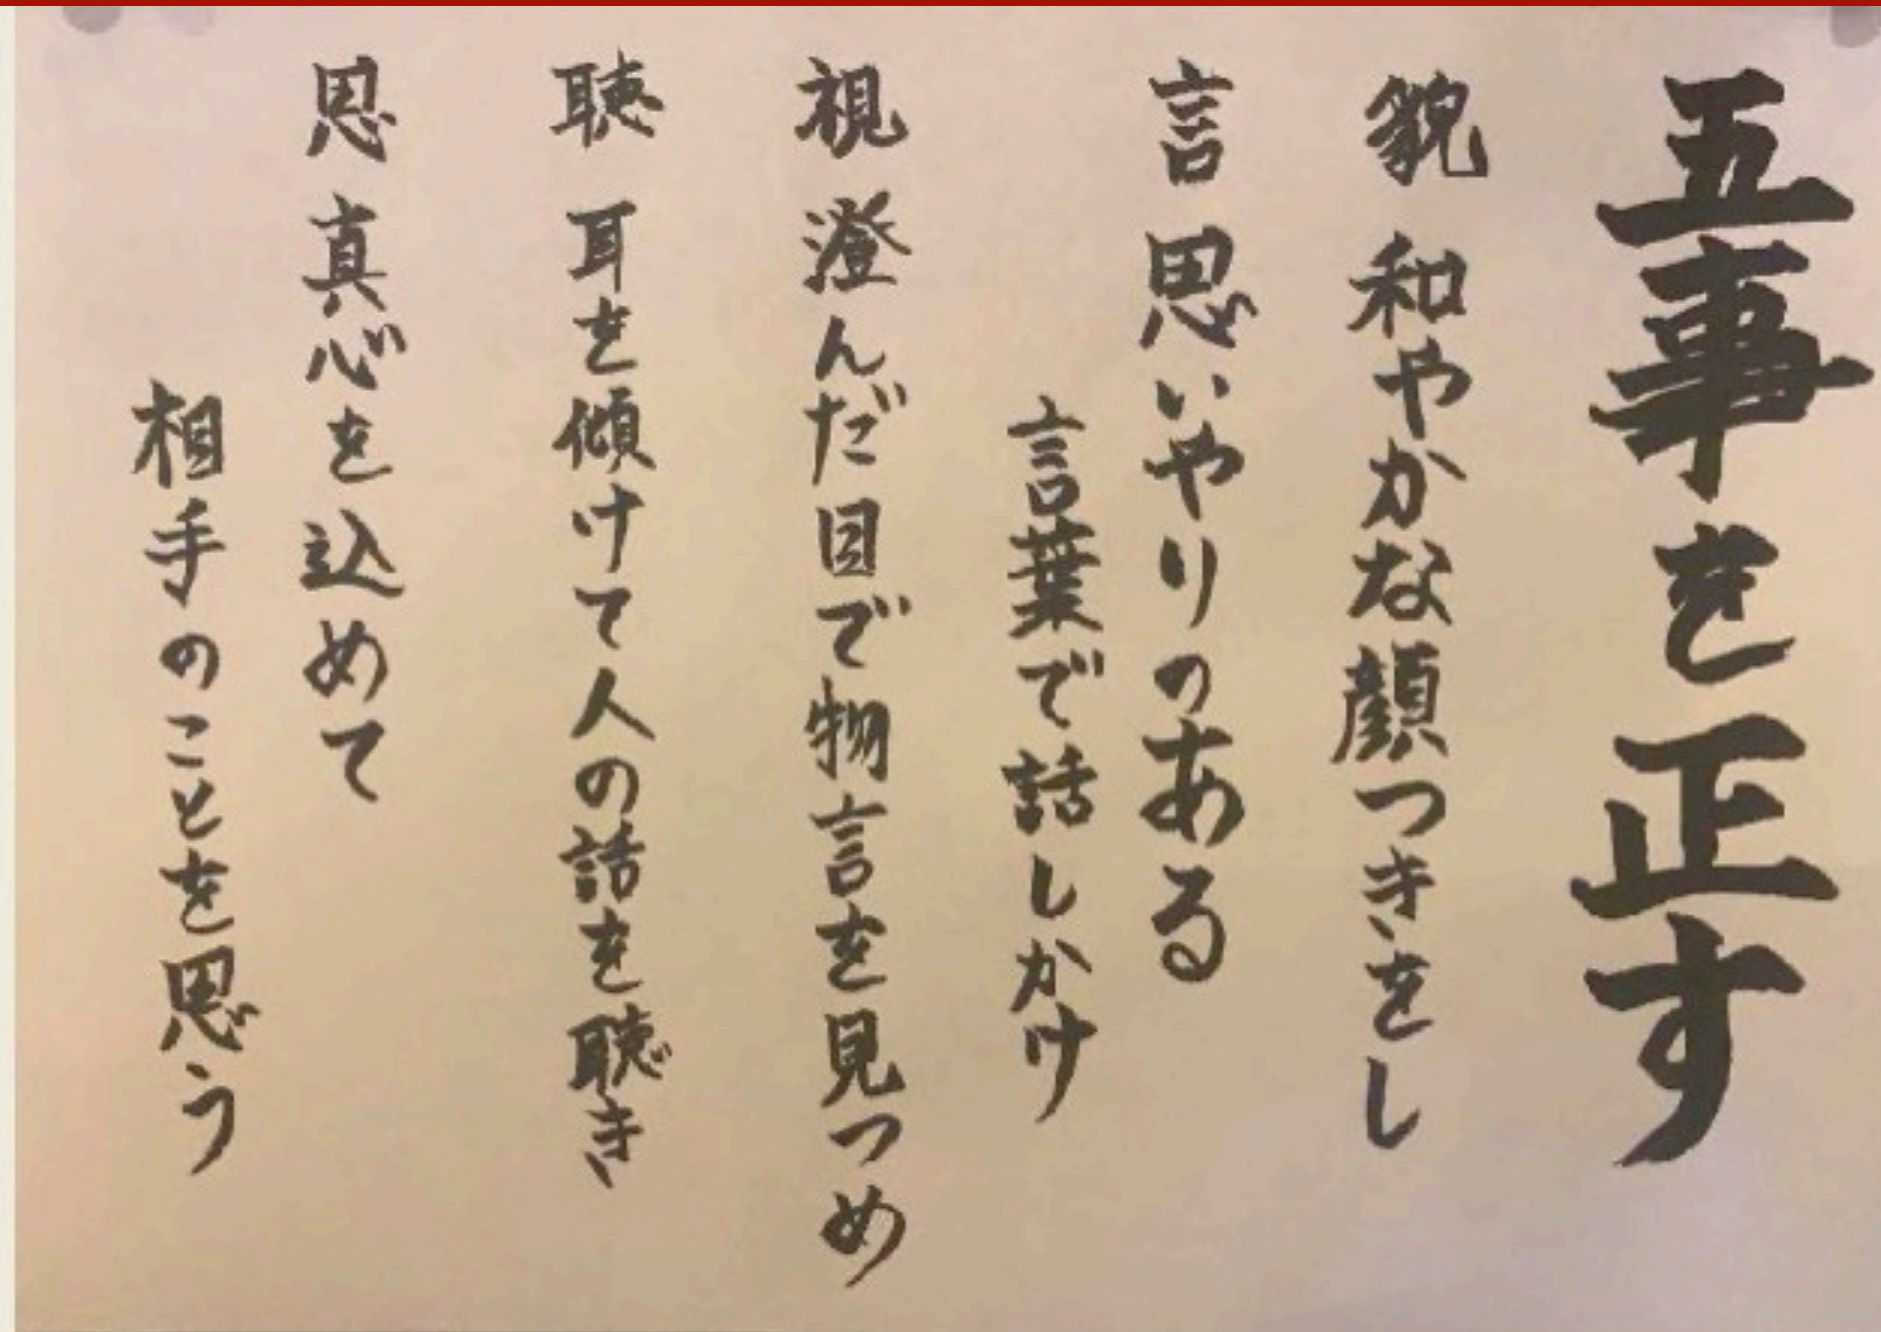 五事を正す
貌 和やかな顔つきをし
言 思いやりのある
言葉で話しかけ
視 澄んだ目で物言を見つめ
聴 耳を傾けて人の話を聴き
思 真心を込めて
相手のことを思う